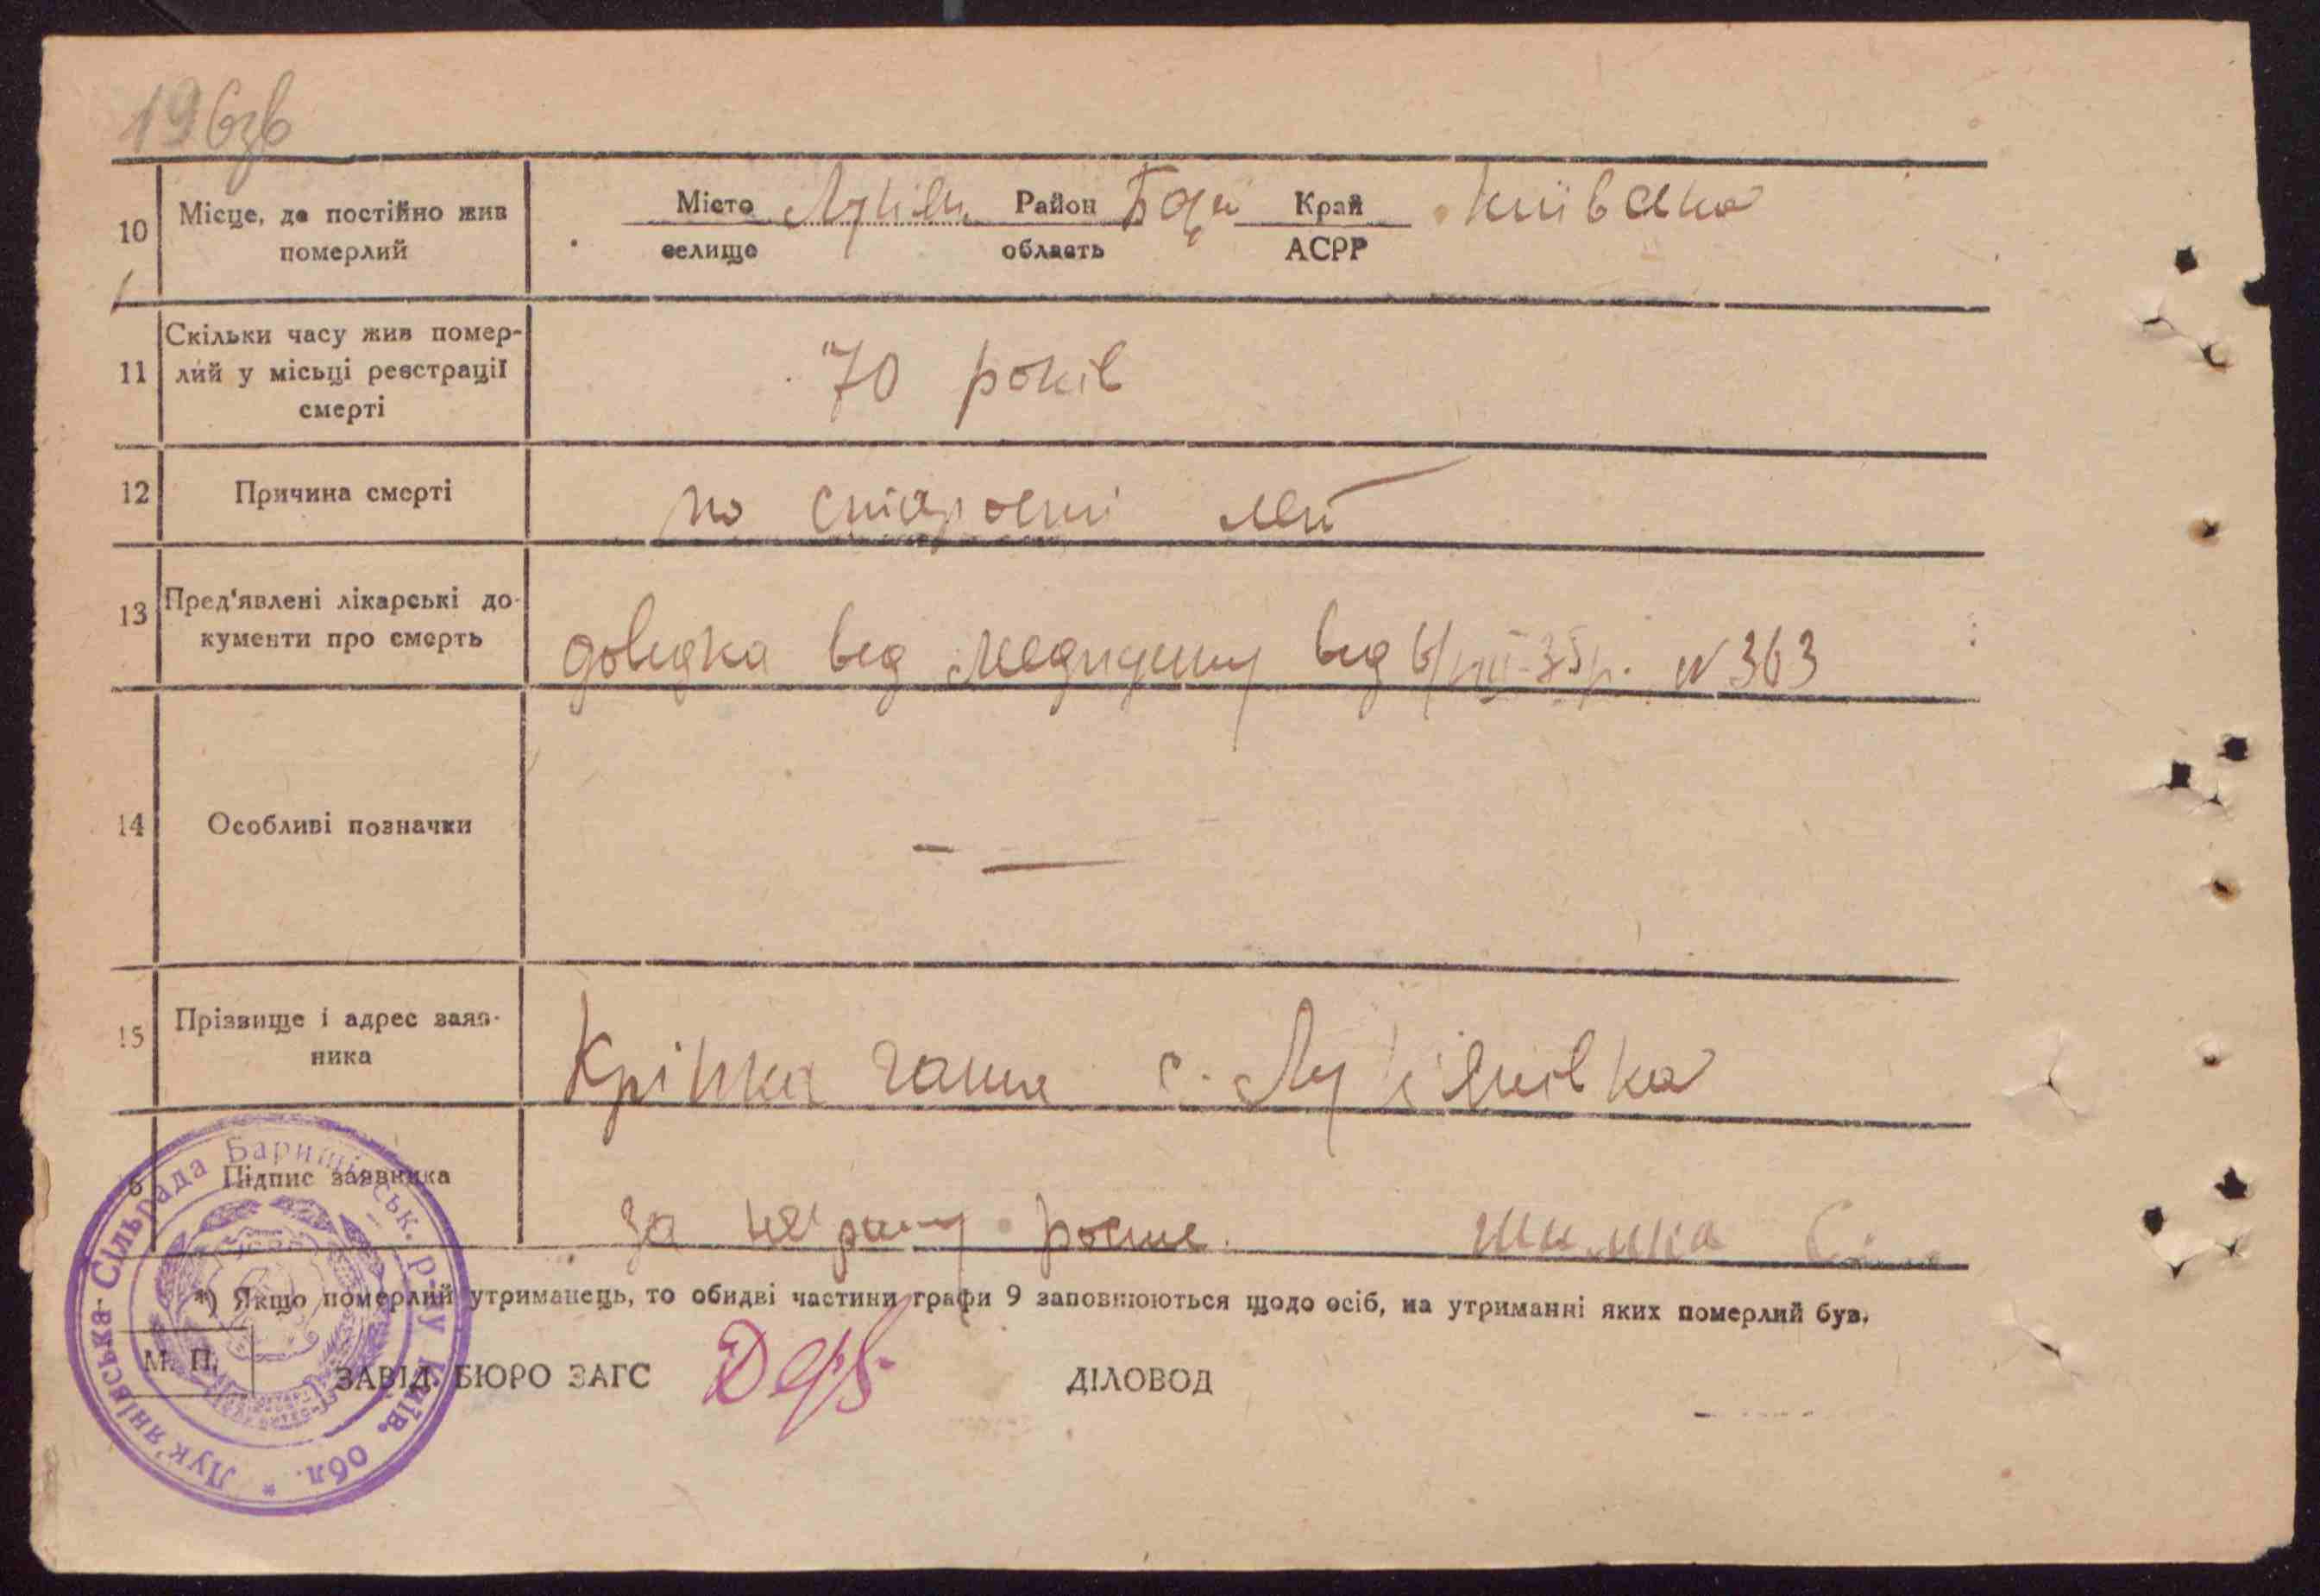 196зв
10 Місце, де постійно жив померлий
Місто Лукіян. Район Бари Край Київська
селище область АСРР
11 Скільки часу жив помер-
лий у місьці реєстрації
смерті
70 років
12 Причина смерті
по старості лет
13 Пред'явлені лікарські до-
кументи про смерть
доведка вед вед 6/VIII-35р. N 363
14 Особливі позначки
— —
15 Прізвище і адрес заяв-
ника
Крічка Ганна с. Лукіянівка
6 Підпис заявника
за роспис.
*) Якщо померлий утриманець, то обидві частини графи 9 заповнюються щодо осіб, на утриманні яких померлий був.
М. П.
ЗАВІД. БЮРО ЗАГС
ДІЛОВОД
Лук'янівська Сільрада Баришівськ. р-ну Київ. обл. *